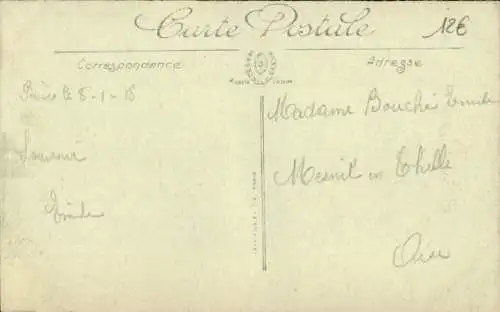 Carte Postale
12€
Correspondence
Adresse
8-1-18
Souvenir
Emile
Madame Bouché
Mesnil en Thelle
Oise